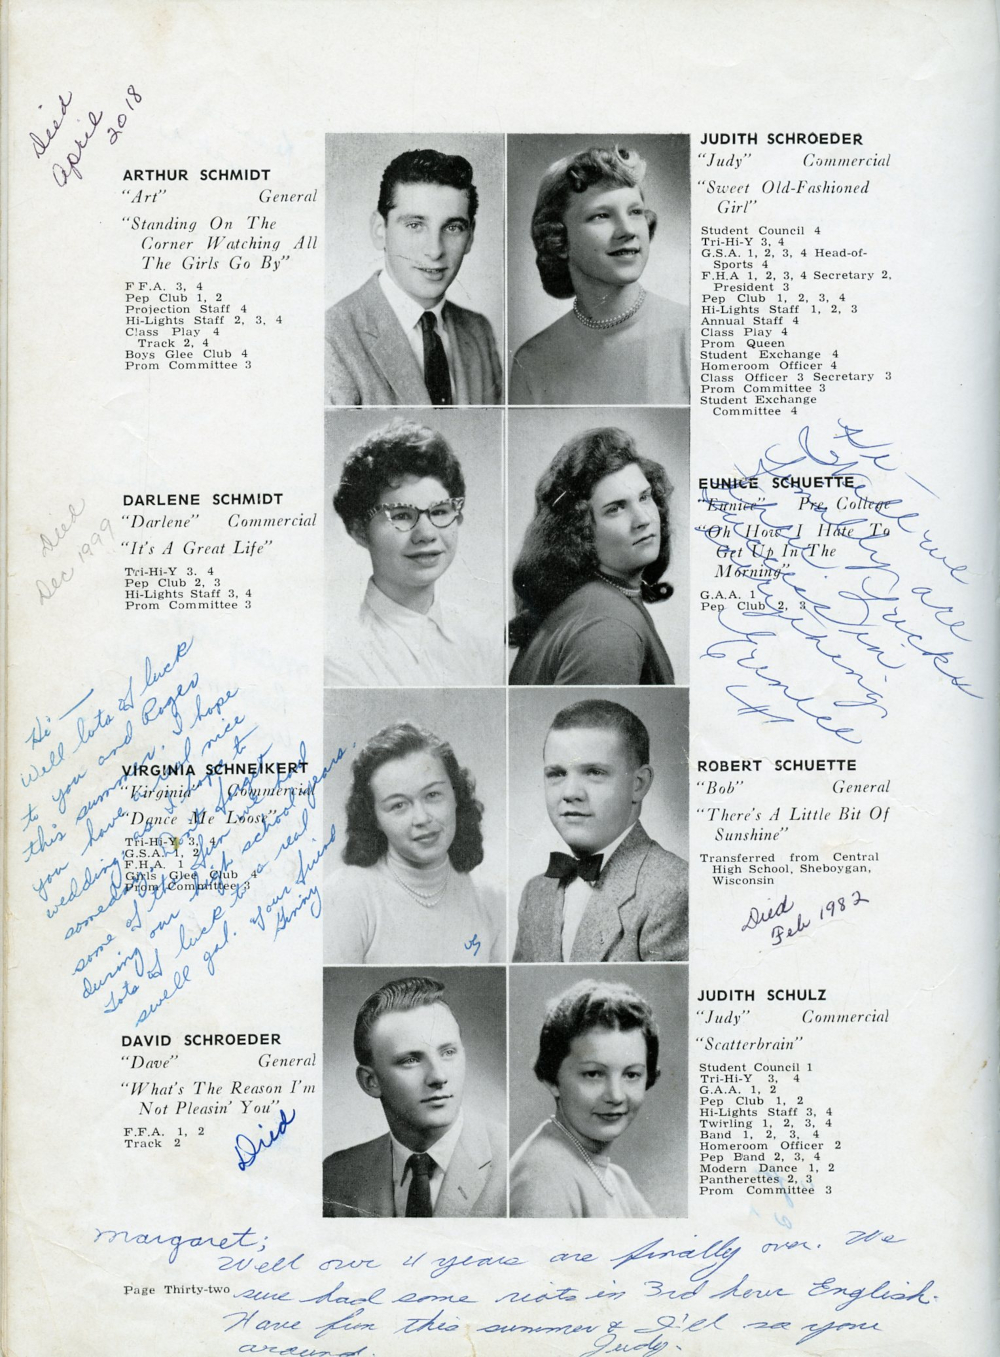 Died
April
2018
ARTHUR SCHMIDT
"Art" General
"Standing On The
Corner Watching All
The Girls Go By"
F F.A. 3, 4
Pep Club 1, 2
Projection Staff 4
Hi-Lights Staff 2, 3, 4
Class Play 4
Track 2, 4
Boys Glee Club 4
Prom Committee 3
JUDITH SCHROEDER
"Judy" Commercial
"Sweet Old-Fashioned
Girl"
Student Council 4
Tri-Hi-Y 3, 4
G.S.A. 1, 2, 3, 4 Head-of-
Sports 4
F.H.A 1, 2, 3, 4 Secretary 2,
President 3
Pep Club 1, 2, 3, 4
Hi-Lights Staff 1, 2, 3
Annual Staff 4
Class Play 4
Prom Queen
Student Exchange 4
Homeroom Officer 4
Class Officer 3 Secretary 3
Prom Committee 3
Student Exchange
Committee 4
Died
Dec 1999
DARLENE SCHMIDT
"Darlene" Commercial
"It's A Great Life"
Tri-Hi-Y 3. 4
Pep Club 2, 3
Hi-Lights Staff 3, 4
Prom Committee 3
EUNICE SCHUETTE
"Eunice" Pre College
"Oh How I Hate To
Get Up In The
Morning"
G.A.A. 1
Pep Club 2, 3
Hi —
Well we
finally are
Lucks
in
Eunice
Hi —
Well lots of luck
to you and Roger
this summer. I hope
you have a real nice
wedding as I hope to
someday. Don't forget
some of the fun we had
during our high school years.
Lots of luck to a real
swell gal. Your friend
Ginny
VIRGINIA SCHNEIKERT
"Virginia" Commercial
"Dance Me Loose"
Tri-Hi-Y 3, 4
G.S.A. 1, 2
F.H.A. 1
Girls Glee Club 4
Prom Committee 3
VS
ROBERT SCHUETTE
"Bob" General
"There's A Little Bit Of
Sunshine"
Transferred from Central
High School, Sheboygan,
Wisconsin
Died
Feb 1982
DAVID SCHROEDER
"Dave" General
"What's The Reason I'm
Not Pleasin' You"
F.F.A. 1, 2
Track 2
Died
JUDITH SCHULZ
"Judy" Commercial
"Scatterbrain"
Student Council 1
Tri-Hi-Y 3, 4
G.A.A. 1, 2
Pep Club 1, 2
Hi-Lights Staff 3, 4
Twirling 1, 2, 3, 4
Band 1, 2, 3, 4
Homeroom Officer 2
Pep Band 2, 3, 4
Modern Dance 1, 2
Pantherettes 2, 3
Prom Committee 3
Margaret;
Well our 4 years are finally over. We
sure had some riots in 3rd hour English.
Have fun this summer & I'll see you
around. Judy-
Page Thirty-two